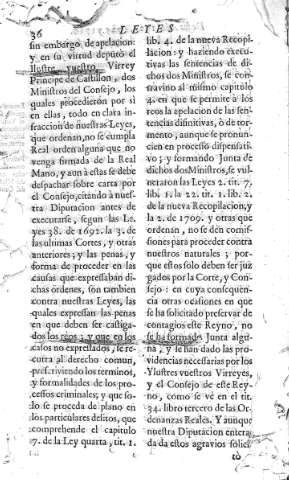 36 LEYES
sin embargo de apelacion:
y en su virtud deputò el
Ilustre vuestro Virrey
Principe de Castillon, dos
Ministros del Consejo, los
quales procedieron por sì
en ellas, todo en clara in-
fraccion de nuestras Leyes,
que ordenan, no se cumpla
Real orden alguna que no
venga firmada de la Real
Mano, y aun à estas se debe
despachar sobre carta por
el Consejo, citando à nues-
tra Diputacion antes de
executarse, segun las Le-
yes 38. de 1692. la 3. de
las ultimas Cortes, y otras
anteriores; y las penas, y
forma de proceder en las
causas que expressaban di-
chas ordenes, son tambien
contra nuestras Leyes, las
quales expressan las penas
en que deben ser castiga-
dos los reos; y que en los
casos no expressados, se re-
curra al derecho comun,
prescriviendo los terminos,
y formalidades de los pro-
cessos criminales; y que so-
lo se proceda de plano en
los particulares delitos, que
comprehende el capitulo
7. de la Ley quarta, tit. 1.
lib. 4. de la nueva Recopi-
lacion: y haziendo execu-
tivas las sentencias de di-
chos dos Ministros, se con-
travino al mismo capitulo
4. en que se permite à los
reos la apelacion de las sen-
tencias difinitivas, ò de tor-
mento, aunque se pronun-
cien en processo dispensati-
vo; y formando Junta de
dichos dos Ministros, se vul-
neraron las Leyes 2. tit. 7.
lib. 1. la 22. tit. 1. lib. 2.
de la nueva Recopilacion, y
la 2. de 1709. y otras que
ordenan, no se den comis-
siones para proceder contra
nuestros naturales; por-
que estos solo deben ser juz-
gados por la Corte, y Con-
sejo: en cuya consequen-
cia otras ocasiones en que
se ha solicitado preservar de
contagios este Reyno, no
se ha formado Junta algu-
na, y se han dado las pro-
videncias necessarias por los
Ylustres vuestros Virreyes,
y el Consejo de este Rey-
no, como se vè en el tit.
34. libro tercero de las Or-
denanzas Reales. Y aunque
nuestra Diputacion entera-
da da estos agravios solici-
tò